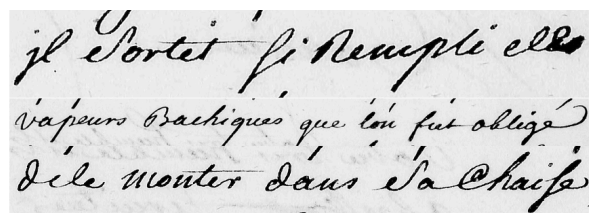 jl Sortit Si Rempli des
vapeurs Bachiques que l'on fut obligé
de le monter dans Sa Chaise